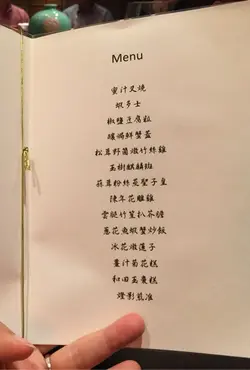 Menu
蜜汁叉燒
蝦多士
椒鹽豆腐粒
釀焗鮮蟹蓋
松茸野菌燉竹絲雞
玉樹麒麟斑
蒜茸粉絲蒸聖子皇
陳年花雕雞
雲腿竹笙扒芥膽
蔥花魚蝦蟹炒飯
冰花燉蓮子
薑汁菊花糕
和田玉棗糕